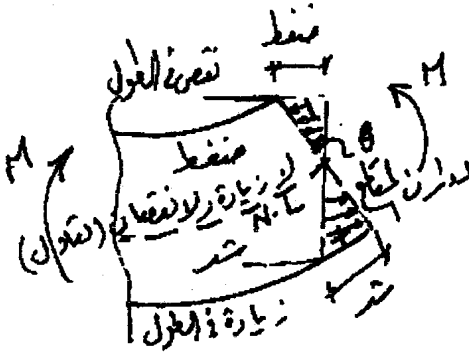 ضغط
نقص في الطول
M
M
θ
ضغط
دوران المقطع
لا زيادة ولا نقصان (التعادل)
N.A
شد
شد
زيادة في الطول